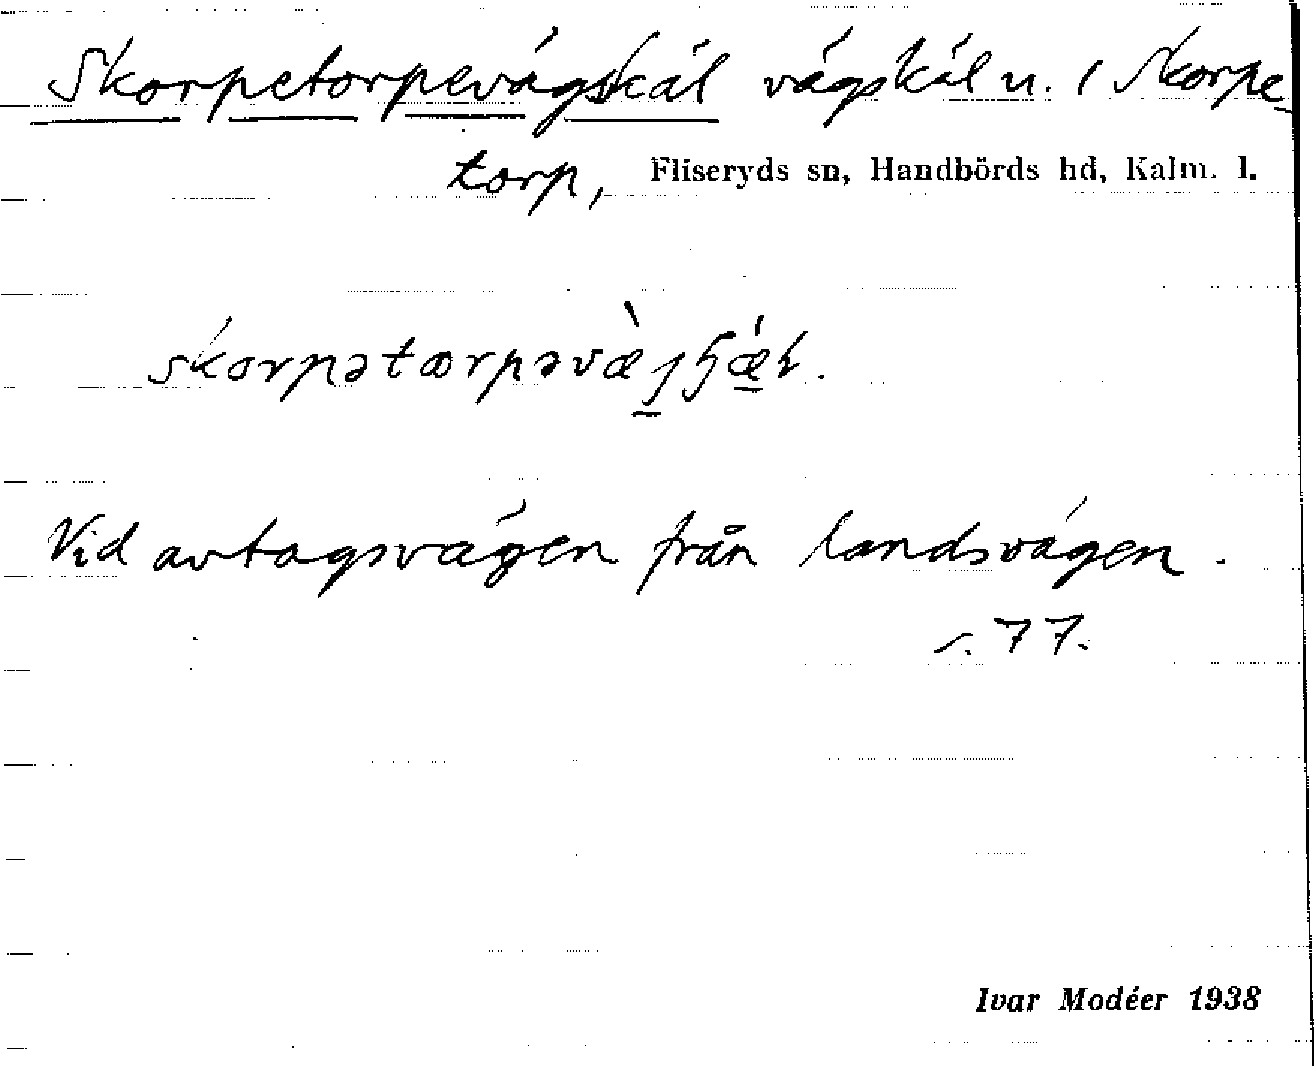 Skorpetorpevägskäl vägskäl n. / Skorpe-
torp, Fliseryds sn, Handbörds hd, Kalm. l.
skorpətœrpəvæ̀ʃɧǽɫ.
Vid avtagsvägen från landsvägen.
s. 77.
Ivar Modéer 1938